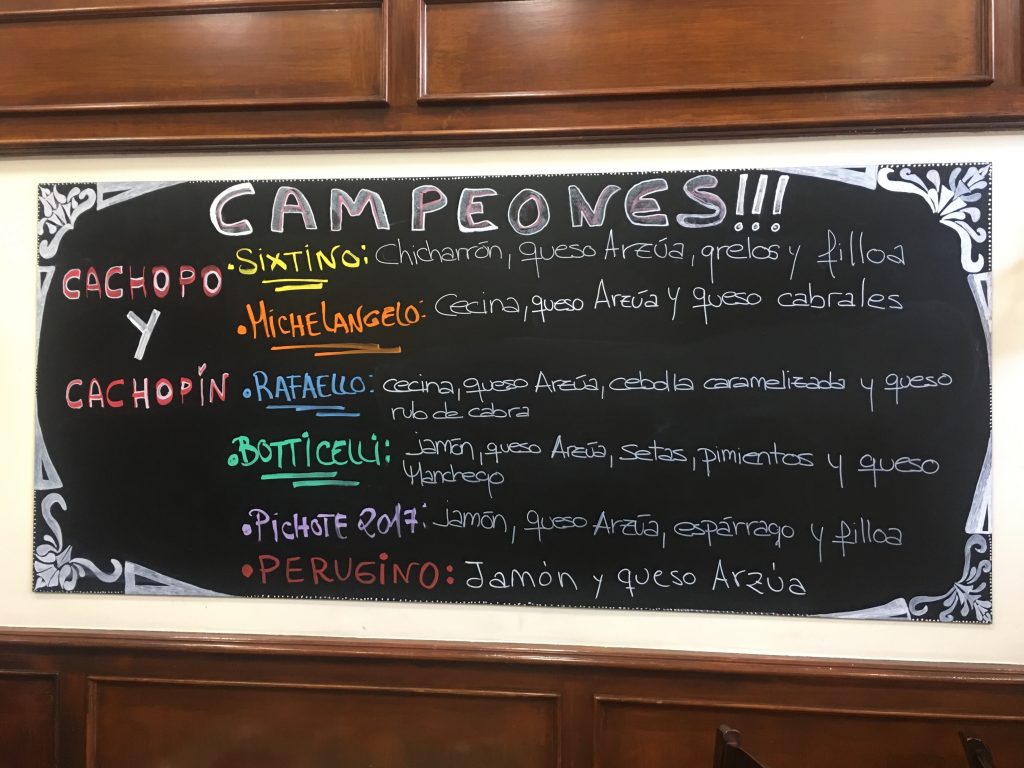 CAMPEONES!!!
CACHOPO
Y
CACHOPÍN
•SIXTINO: Chicharrón, queso Arzúa, grelos y filloa
•MICHELANGELO: Cecina, queso Arzúa y queso cabrales
•RAFAELLO: cecina, queso Arzúa, cebolla caramelizada y queso
rulo de cabra
•BOTTICELLI: jamón, queso Arzúa, setas, pimientos y queso
Manchego
•PICHOTE 2017: Jamón, queso Arzúa, espárrago y filloa
•PERUGINO: Jamón y queso Arzúa